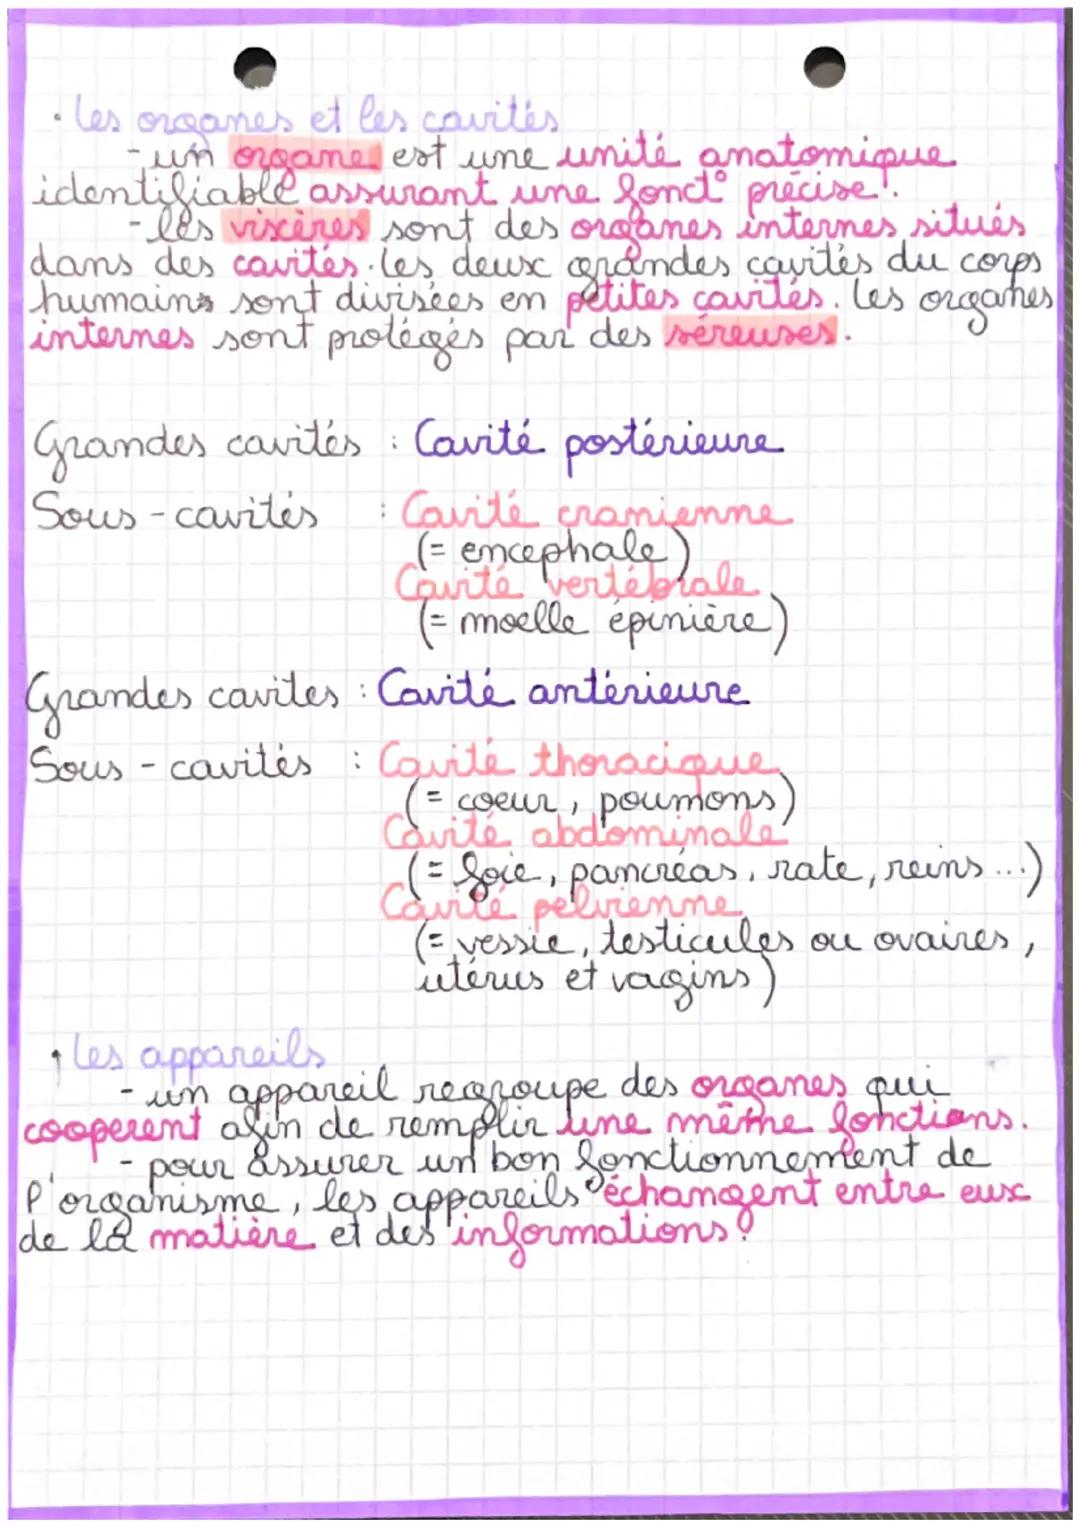 • Les organes et les cavités
- un organe est une unité anatomique
identifiable assurant une fonct° précise.
- les viscères sont des organes internes situés
dans des cavités. Les deux grandes cavités du corps
humains sont divisées en petites cavités. Les organes
internes sont protégés par des séreuses.
Grandes cavités : Cavité postérieure
Sous - cavités : Cavité cranienne
(= encephale)
Cavité vertébrale
(= moelle épinière)
Grandes cavites : Cavité antérieure
Sous - cavités : Cavité thoracique
(= coeur, poumons)
Cavité abdominale
(= foie, pancréas, rate, reins ...)
Cavité pelvienne
(= vessie, testicules ou ovaires,
utérus et vagins)
• Les appareils
- un appareil regroupe des organes qui
cooperent afin de remplir une même fonctions.
- pour assurer un bon fonctionnement de
l'organisme, les appareils échangent entre eux
de la matière et des informations.